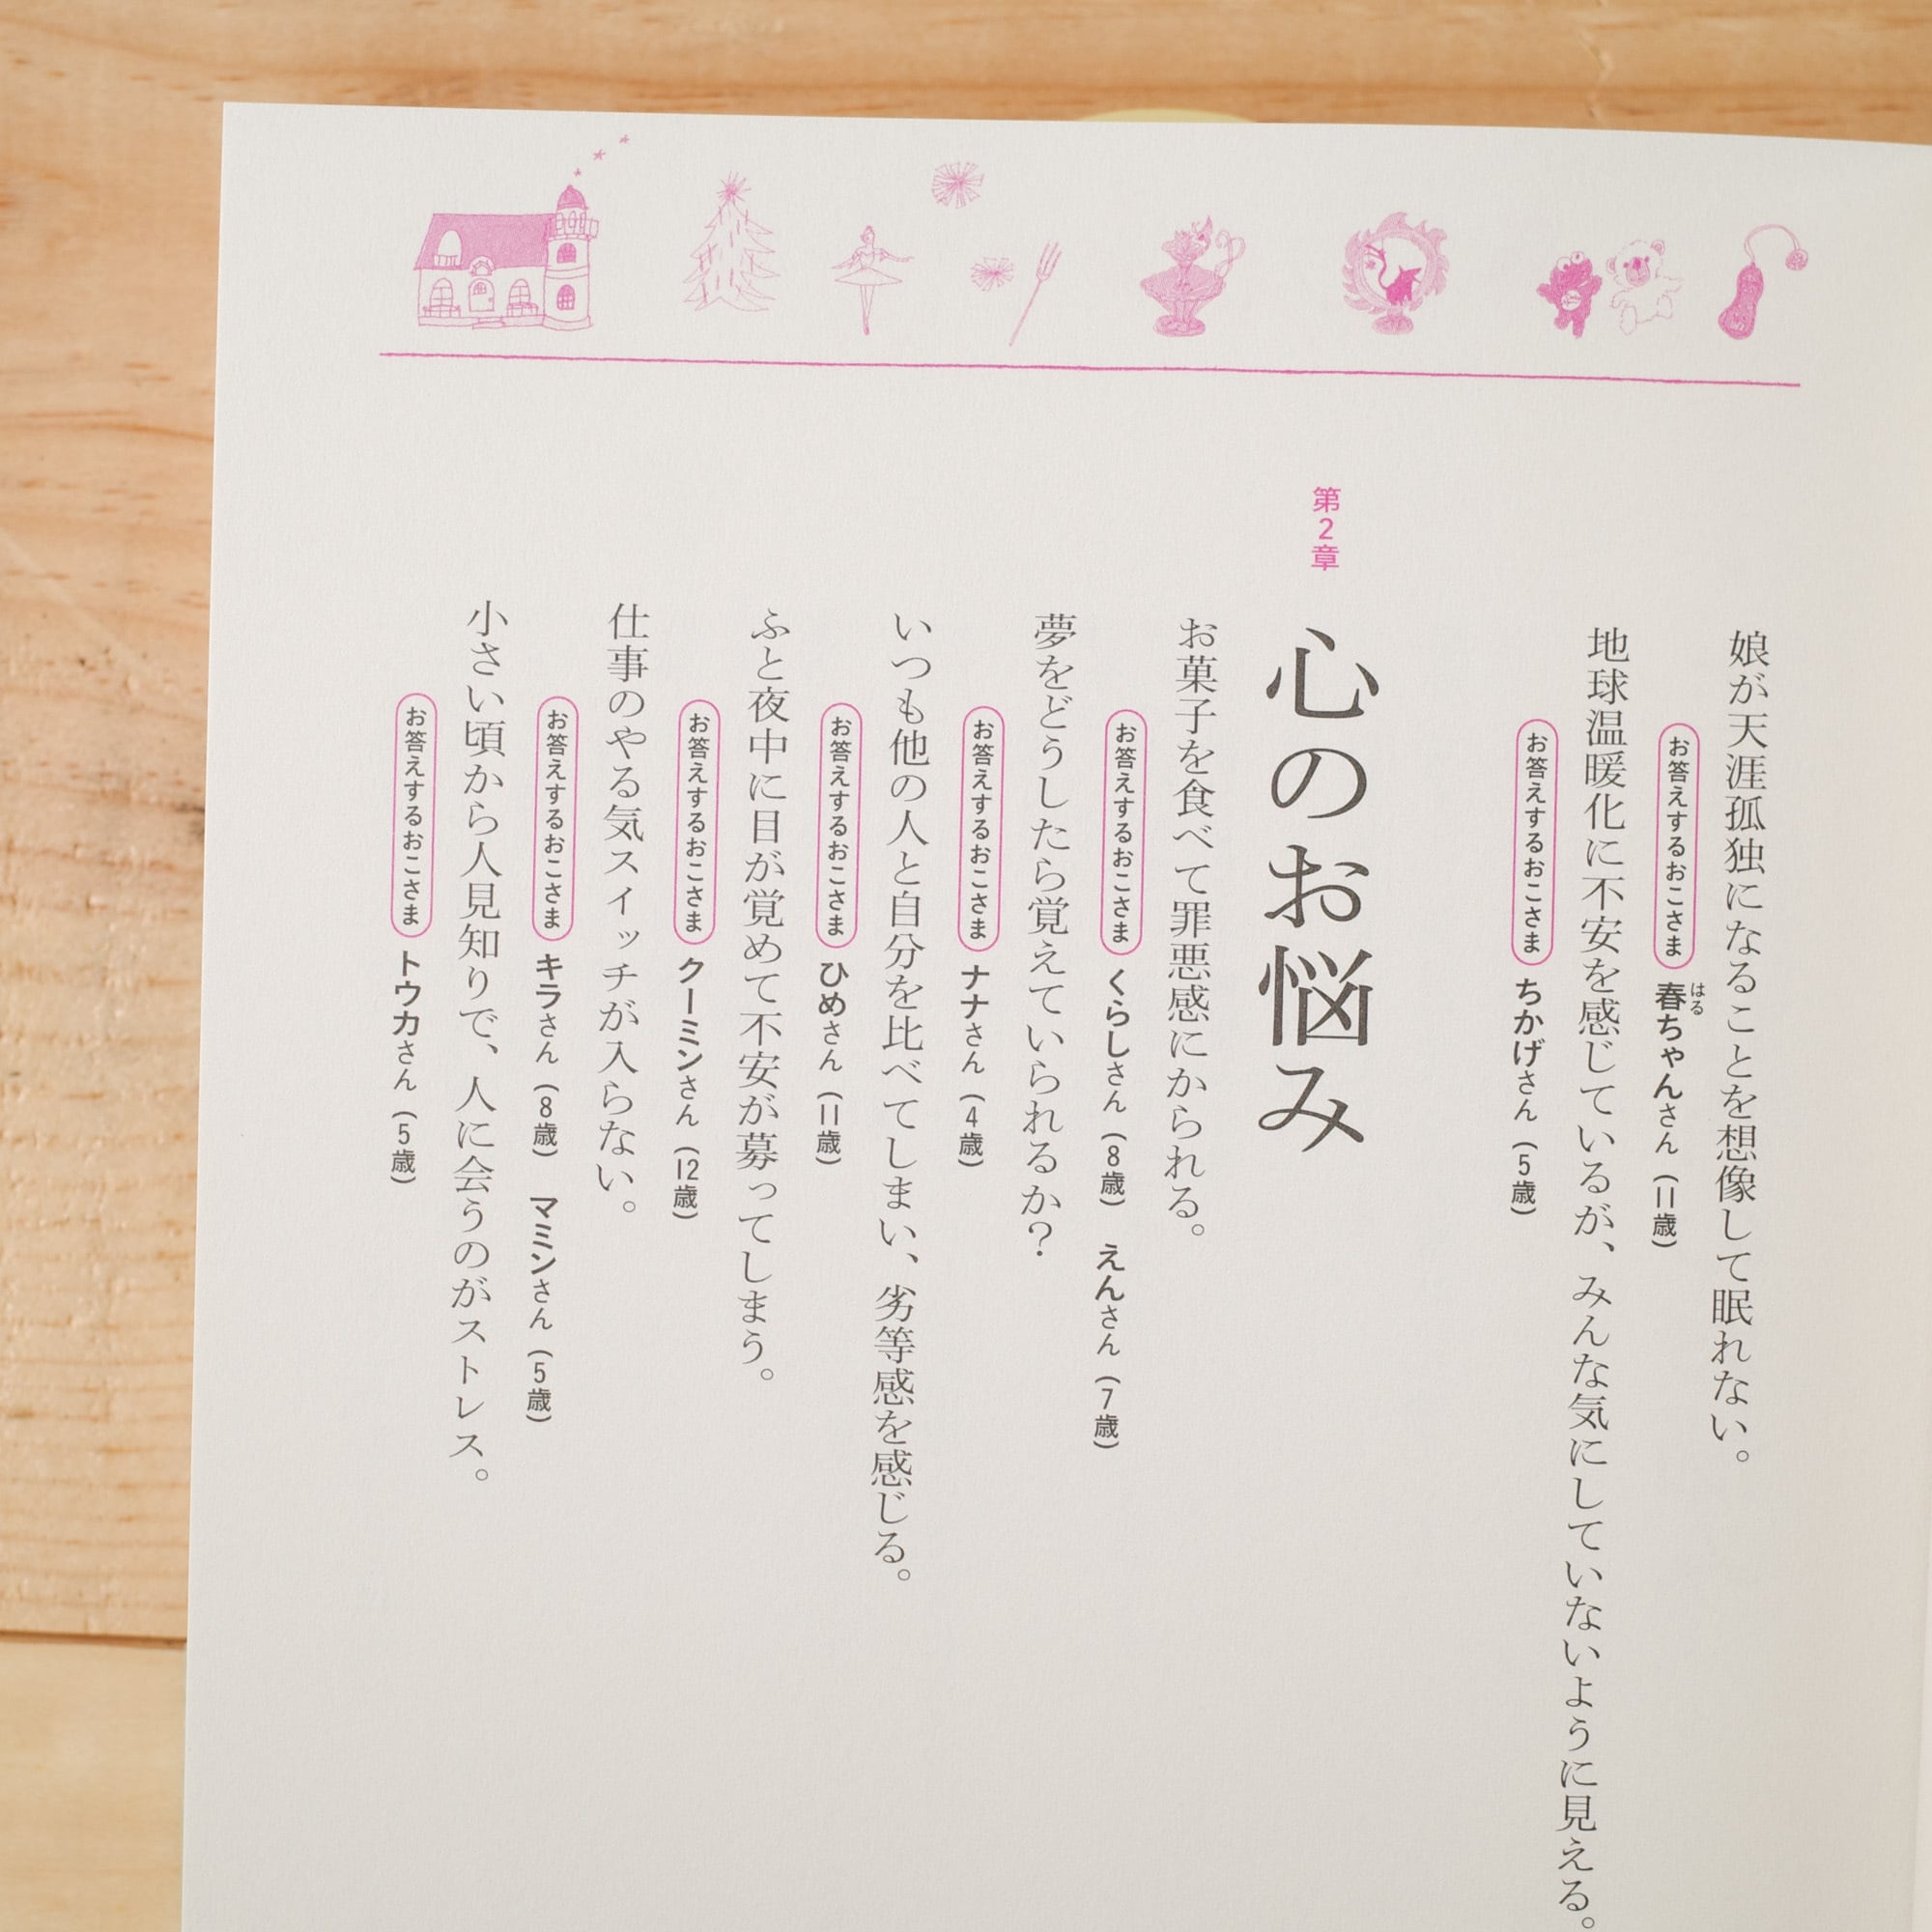 娘が天涯孤独になることを想像して眠れない。
お答えするおこさま 春ちゃんさん（11歳）
はる
地球温暖化に不安を感じているが、みんな気にしていないように見える。
お答えするおこさま ちかげさん（5歳）
第2章 心のお悩み
お菓子を食べて罪悪感にかられる。
お答えするおこさま くらしさん（8歳） えんさん（7歳）
夢をどうしたら覚えていられるか？
お答えするおこさま ナナさん（4歳）
いつも他の人と自分を比べてしまい、劣等感を感じる。
お答えするおこさま ひめさん（11歳）
ふと夜中に目が覚めて不安が募ってしまう。
お答えするおこさま クーミンさん（12歳）
仕事のやる気スイッチが入らない。
お答えするおこさま キラさん（8歳） マミンさん（5歳）
小さい頃から人見知りで、人に会うのがストレス。
お答えするおこさま トウカさん（5歳）